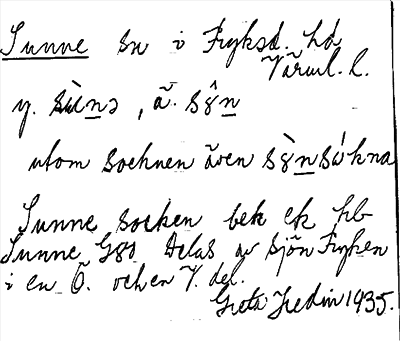 Sunne sn i Fryksd. hd
Värml. l.
y. sùnə, ä. sŷn
utom socknen även sỳnsókna
Sunne socken bek ek hb
Sunne Gso Delas av sjön Fryken
i en Ö. och en V. del.
Greta Hedin 1935.